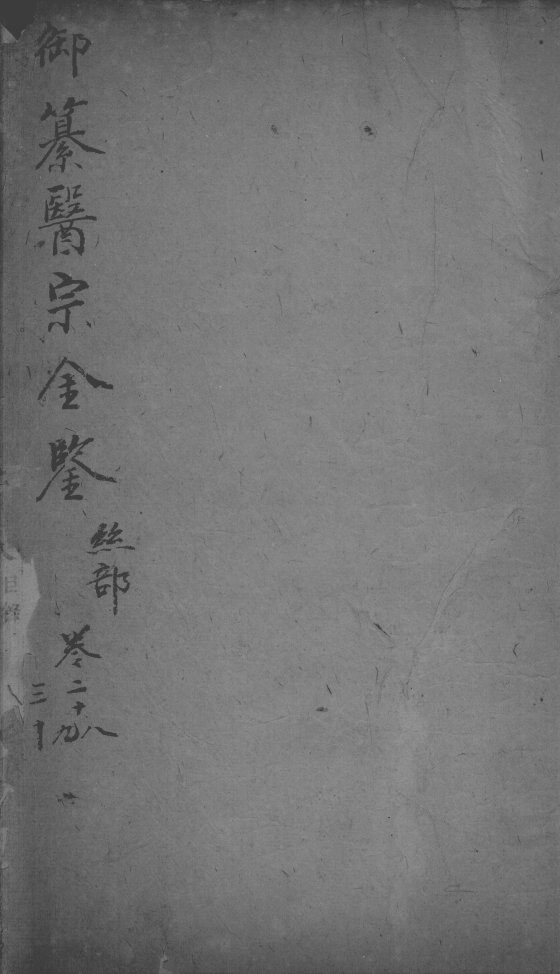 御纂醫宗金鑒
絲部
卷二十八
九
三十
目錄